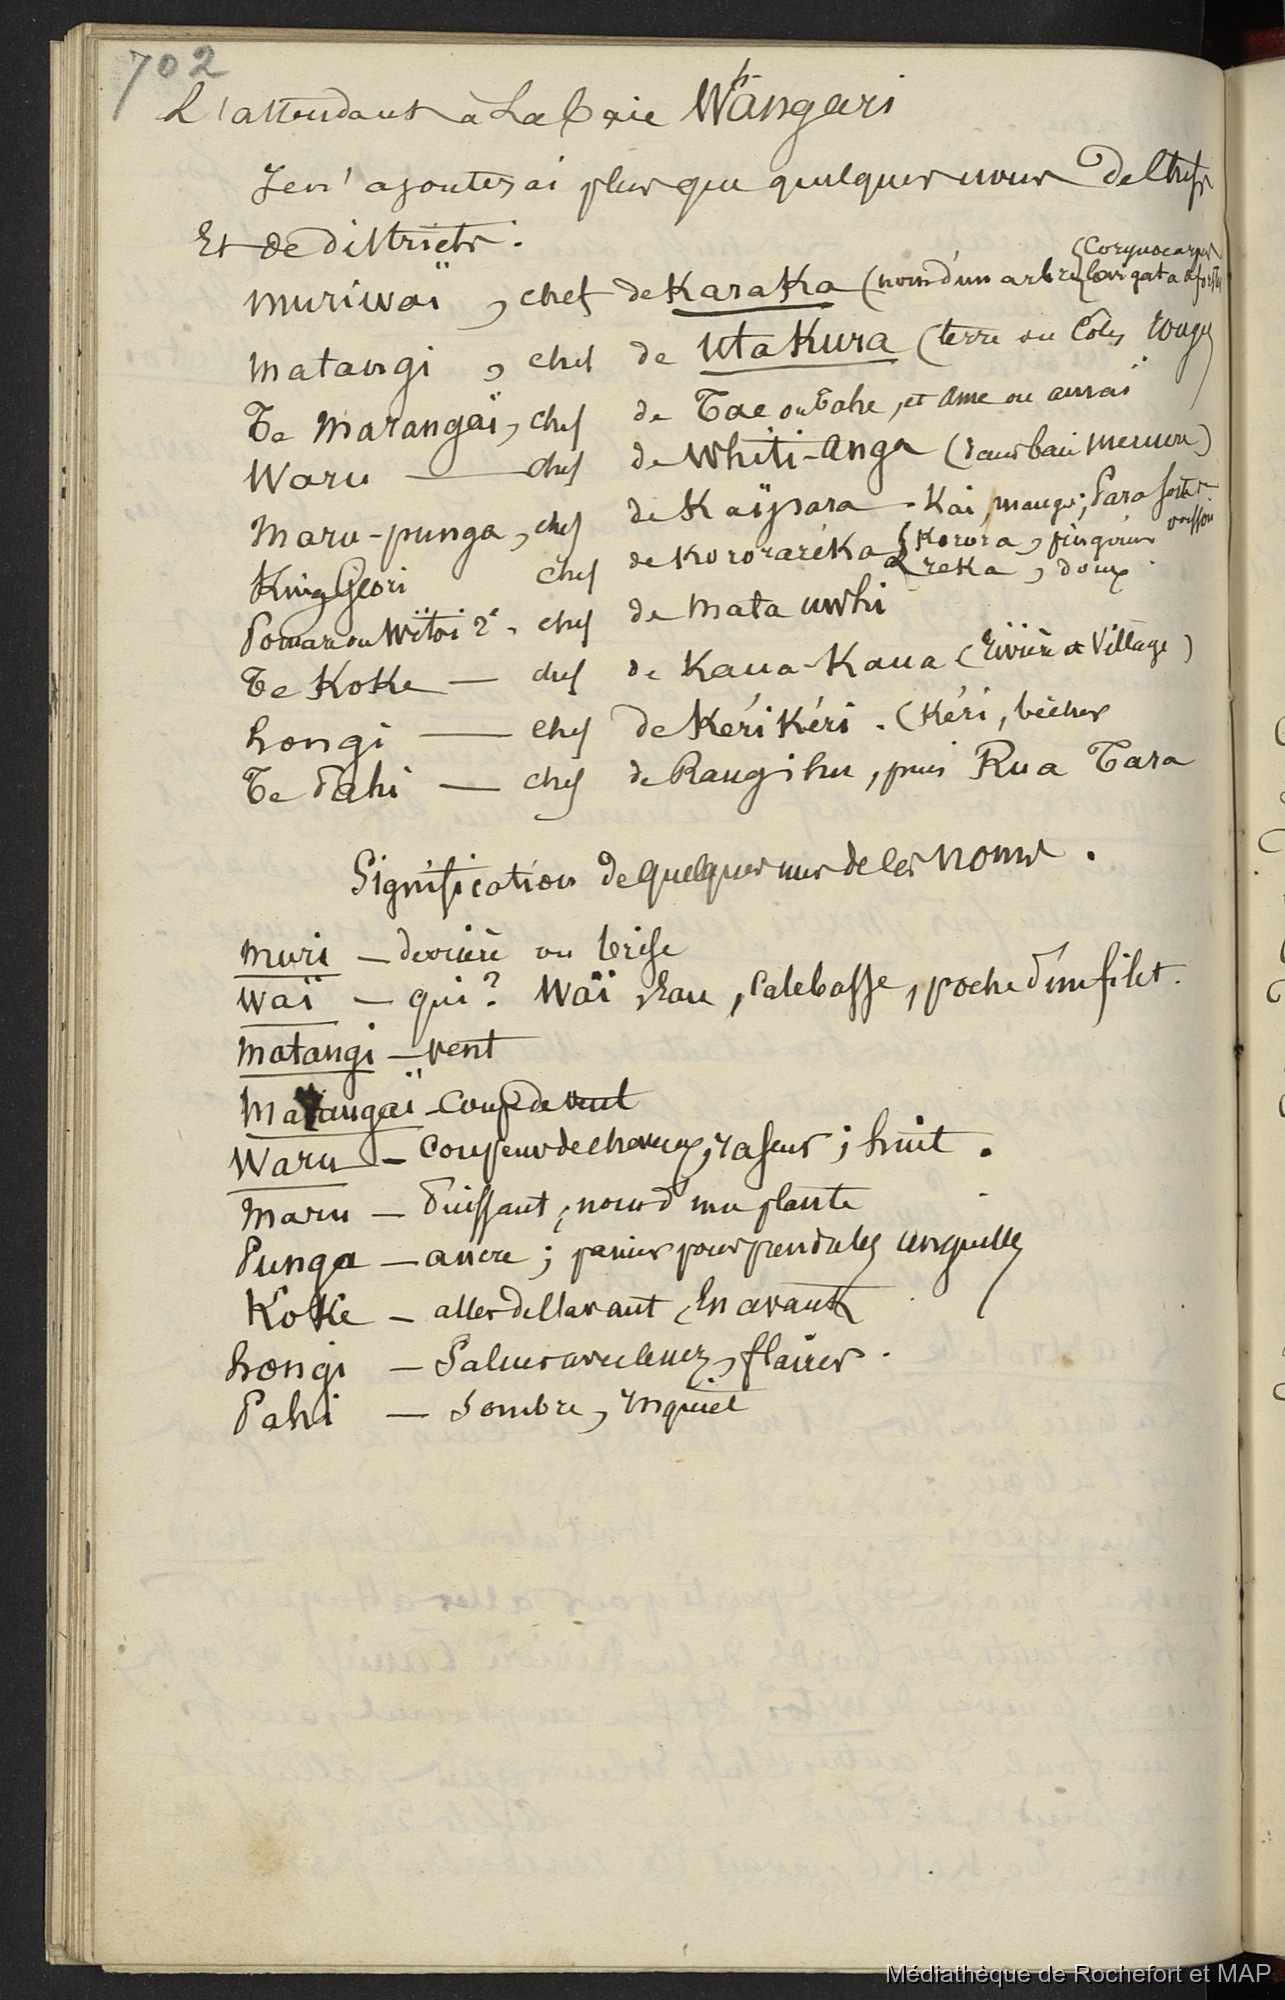 702
L'attendant à La baie Whangari
Je n'ajouterai plus que quelques noms de Chefs
Et de districts.
Muriwaï, chef de Karaka (nom d'un arbre { Corynocarpus lævigata
Matangi, chef de Uta Kura (terre ou côtes rouges)
Te Marangaï, chef de Tae ou Tahe, et ame ou aussi
Waru — chef de Whiti-anga
Maru-punga, chef de Kaïpara - Kai, manger; Para sorte poisson
King Geori chef de Kororaréka { Korora, pingouin
& reka, doux.
Pomare ou Witoi 2e, chef de Mata uwhi
Te Koke — chef de Kaua-Kaua (Rivière et Village)
hongi — chef de KériKéri. (Kéri, bêcher
Te Pahi — chef de Rangihu, puis Rua Tara
Signification de quelques uns de ces noms.
Muri — derrière ou brise
Waï — qui? Waï, Eau, Calebasse, poche d'un filet.
Matangi — vent
Marangaï — Coup de vent
Waru — Coupeur de cheveux, raseur; huit.
Maru — Puissant, nom d'une plante
Punga — ancre; panier pour prendre les anguilles
Koke — aller de l'avant, En avant
hongi — Saluer avec le nez, flairer.
Pahi — Sombre, Inquiet
Médiathèque de Rochefort et MAP